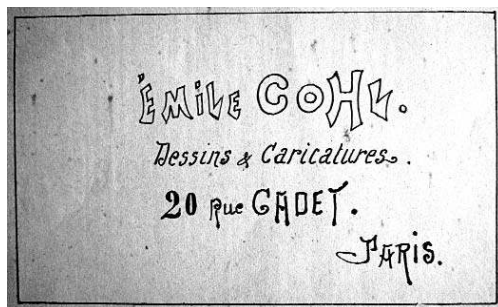 ÉMILE COHL.
Dessins & Caricatures.
20 Rue CADET.
PARIS.